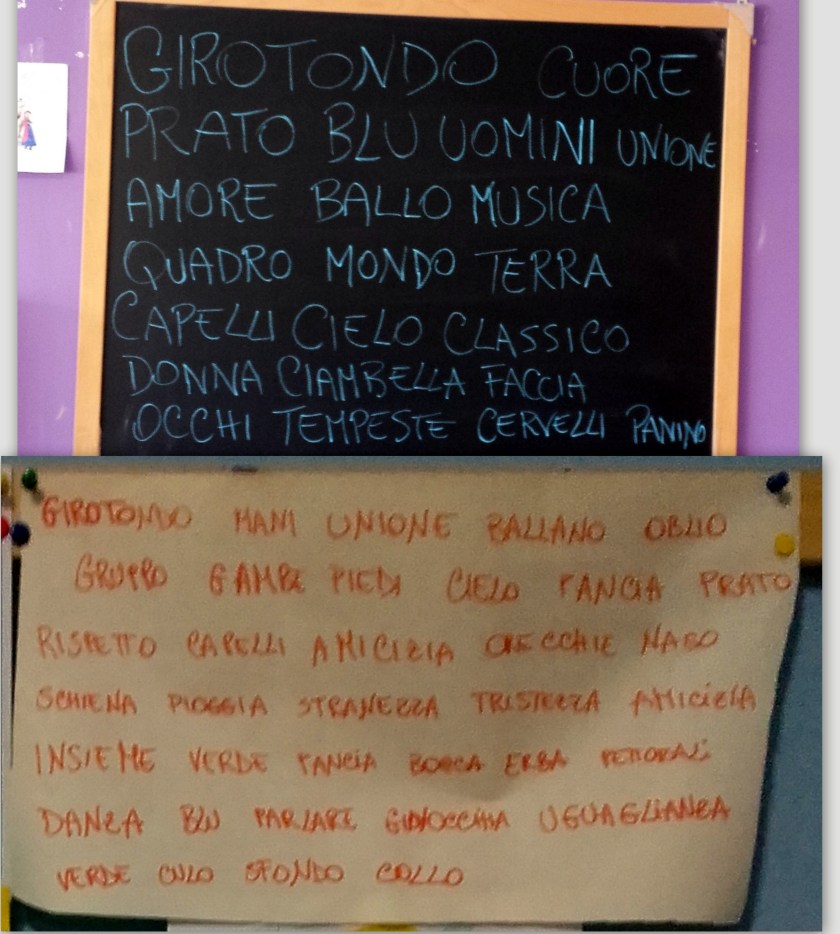 GIROTONDO CUORE
PRATO BLU UOMINI UNIONE
AMORE BALLO MUSICA
QUADRO MONDO TERRA
CAPELLI CIELO CLASSICO
DONNA CIAMBELLA FACCIA
OCCHI TEMPESTE CERVELLI PANINO
GIROTONDO MANI UNIONE BALLANO OBLIO
GRUPPO GAMBE PIEDI CIELO PANCIA PRATO
RISPETTO CAPELLI AMICIZIA ORECCHIE NASO
SCHIENA PIOGGIA STRANEZZA TRISTEZZA AMICIZIA
INSIEME VERDE PANCIA BOCCA ERBA PETTORALI
DANZA BLU PARLARE GINOCCHIA UGUAGLIANZA
VERDE CULO SFONDO COLLO